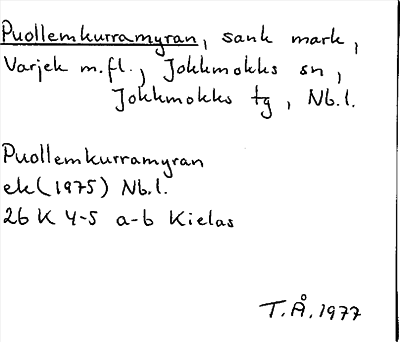 Puollemkurramyran, sank mark,
Varjek m.fl., Jokkmokks sn,
Jokkmokks tg, Nb.l.
Puollemkurramyran
ek (1975) Nb.l.
26 K 4-5 a-b Kielas
T.Å. 1977